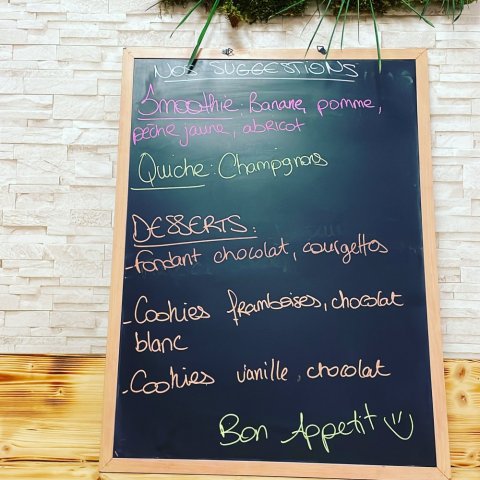 NOS SUGGESTIONS
Smoothie: Banane, pomme,
pêche jaune, abricot
Quiche: Champignons
DESSERTS:
-Fondant chocolat, courgettes
-Cookies framboises, chocolat
blanc
-Cookies vanille, chocolat
Bon Appetit